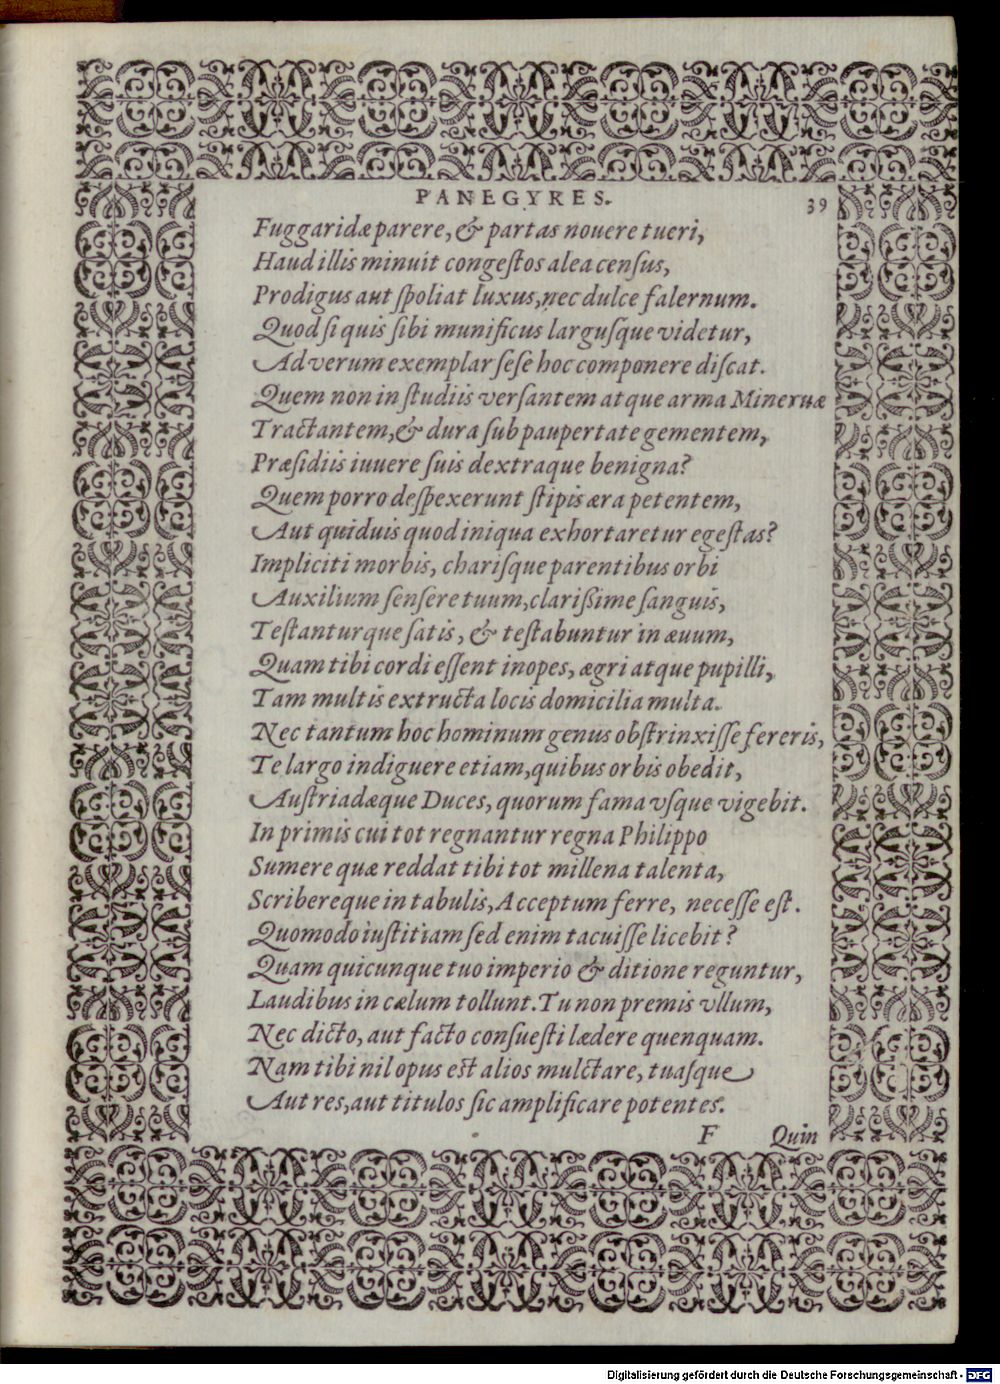 PANEGYRES. 39
Fuggaridæ parere, & partas nouere tueri,
Haud illis minuit congestos alea census,
Prodigus aut spoliat luxus, nec dulce falernum.
Quod si quis sibi munificus largusque videtur,
Ad verum exemplar sese hoc componere discat.
Quem non in studiis versantem atque arma Mineruæ
Tractantem, & dura sub paupertate gementem,
Præsidiis iuuere suis dextraque benigna?
Quem porro despexerunt stipis æra petentem,
Aut quiduis quod iniqua exhortaretur egestas?
Impliciti morbis, charisque parentibus orbi
Auxilium sensere tuum, clarißime sanguis,
Testanturque satis, & testabuntur in æuum,
Quam tibi cordi essent inopes, ægri atque pupilli,
Tam multis extructa locis domicilia multa.
Nec tantum hoc hominum genus obstrinxisse fereris,
Te largo indiguere etiam, quibus orbis obedit,
Austriadæque Duces, quorum fama vsque vigebit.
In primis cui tot regnantur regna Philippo
Sumere quæ reddat tibi tot millena talenta,
Scribereque in tabulis, Acceptum ferre, necesse est.
Quomodo iustitiam sed enim tacuisse licebit?
Quam quicunque tuo imperio & ditione reguntur,
Laudibus in cælum tollunt. Tu non premis vllum,
Nec dicto, aut facto consuesti lædere quenquam.
Nam tibi nil opus est alios mulctare, tuasque
Aut res, aut titulos sic amplificare potentes.
F Quin
Digitalisierung gefördert durch die Deutsche Forschungsgemeinschaft - DFG